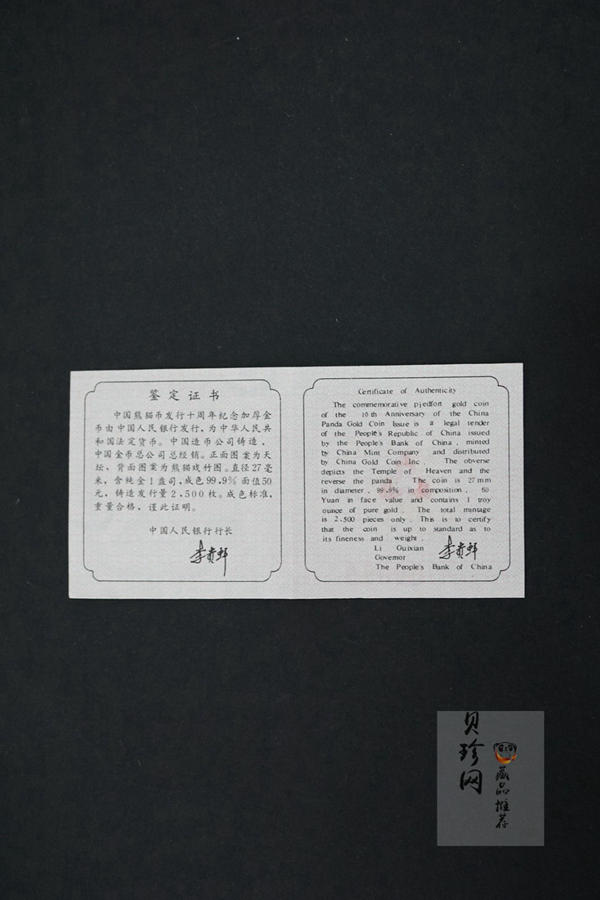 鉴定证书
中国熊猫币发行十周年纪念加厚金
币由中国人民银行发行，为中华人民共
和国法定货币。中国造币公司铸造，
中国金币总公司总经销。正面图案为天
坛，背面图案为熊猫戏竹图。直径27毫
米，含纯金1盎司，成色99.9%面值50
元，铸造发行量2,500枚。成色标准，
重量合格，谨此证明。
中国人民银行行长
李贵鲜
Certificate of Authenticity
The commemorative pjedfort gold coin
of the 10th Anniversary of the China
Panda Gold Coin Issue is a legal tender
of the People's Republic of China issued
by the People's Bank of China, minted
by China Mint Company and distributed
by China Gold Coin Inc. The obverse
depicts the Temple of Heaven and the
reverse the panda. The coin is 27mm
in diameter, 99.9% in composition, 50
Yuan in face value and contains 1 troy
ounce of pure gold. The total mintage
is 2,500 pieces only. This is to certify
that the coin is up to standard as to
its fineness and weight.
Li Guixian
Governor
The People's Bank of China
李贵鲜
贝珍网
藏品推荐